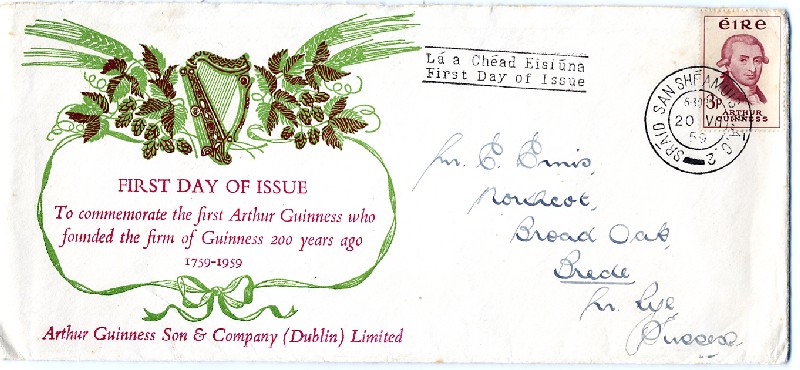 FIRST DAY OF ISSUE
To commemorate the first Arthur Guinness who
founded the firm of Guinness 200 years ago
1759-1959
Arthur Guinness Son & Company (Dublin) Limited
Lá a Chéad Eisiúna
First Day of Issue
éIRe
3p
ARTHUR
GUINNESS
SRÁID SAN SHÉAMUIS
B.Á.C. 2
20 VII
59
Mr. E. Ennis,
Northcot,
Broad Oak,
Brede
Nr. Rye
Sussex